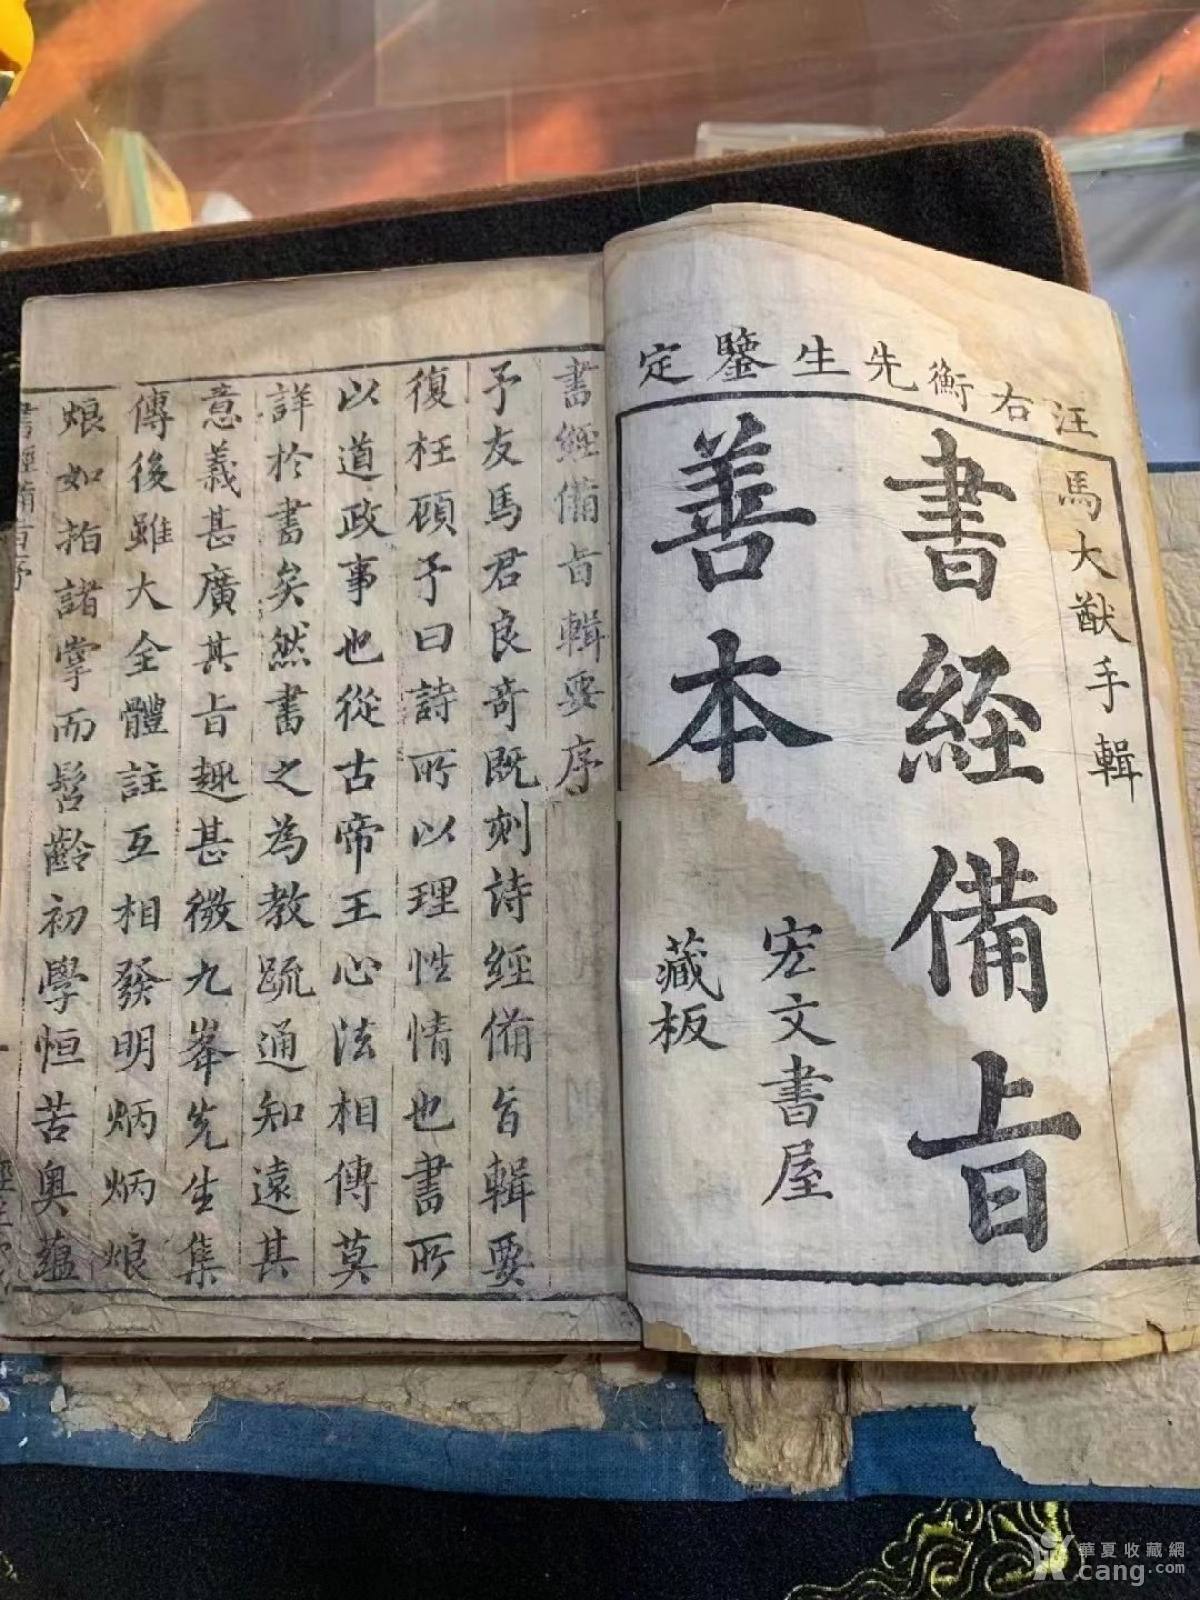 汪右衡先生鑒定
馬大猷手輯
書經備旨
善本
宏文書屋
藏板
書經備旨輯要序
予友馬君良奇既刻詩經備旨輯要
復枉顧予曰詩所以理性情也書所
以道政事也從古帝王心法相傳莫
詳於書矣然書之為教疏通知遠其
意義甚廣其旨趣甚微九峯先生集
傳後雖大全體註互相發明炳炳烺
烺如指諸掌而髫齡初學恒苦奧蘊
書經備旨序
華夏收藏網
cang.com